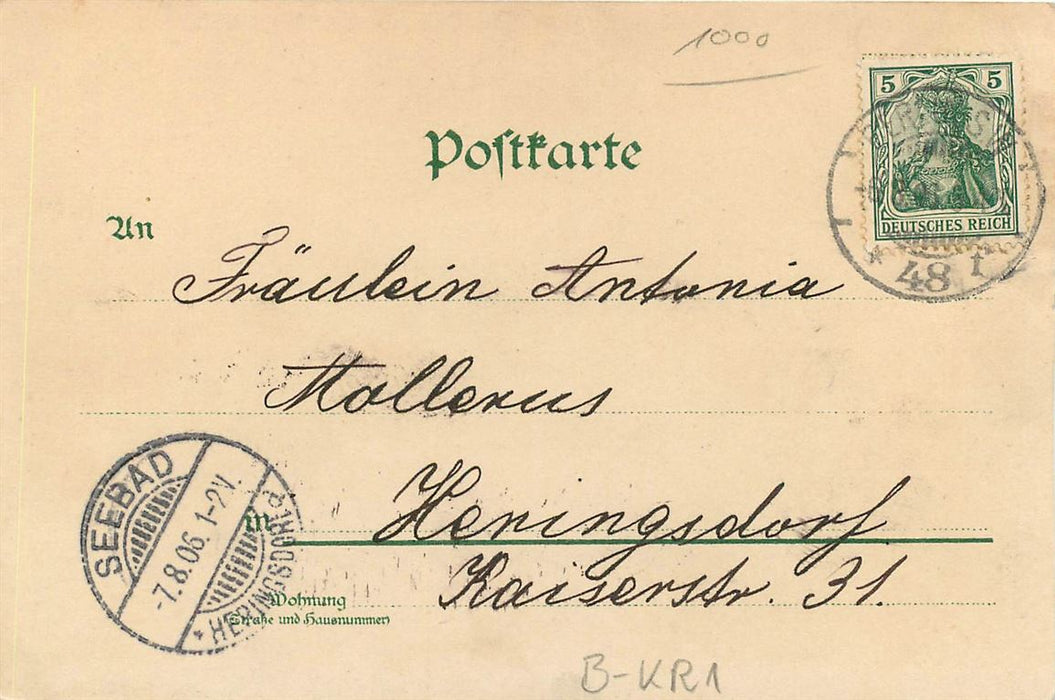 1000
5 5
DEUTSCHES REICH
* 48 t
Postkarte
An
Fräulein Antonia
Mollerus
in Heringsdorf
Kaiserstr. 31.
SEEBAD
-7.8.06. 1-2 N.
* HERINGSDORF
Wohnung
(Straße und Hausnummer)
B-KR1